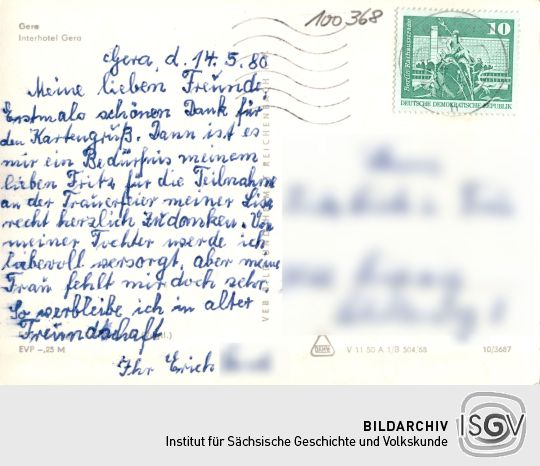 Gera
Interhotel Gera
100 368
Berlin Rathausstraße
10
DEUTSCHE DEMOKRATISCHE REPUBLIK
Gera, d. 14.5.80
Meine lieben Freunde
Erstmals schönen Dank für
den Kartengruß. Dann ist es
mir ein Bedürfnis meinem
lieben Fritz für die Teilnahme
an der Trauerfeier meiner Lisa
recht herzlich zu danken. Von
meiner Tochter werde ich
liebevoll versorgt, aber meine
Frau fehlt mir doch sehr.
So verbleibe ich in alter
Freundschaft
Ihr Erich
EVP -,25 M
VEB REICHENBACH
V 11 50 A 1/B 504/68
10/3687
BILDARCHIV
ISGV
Institut für Sächsische Geschichte und Volkskunde